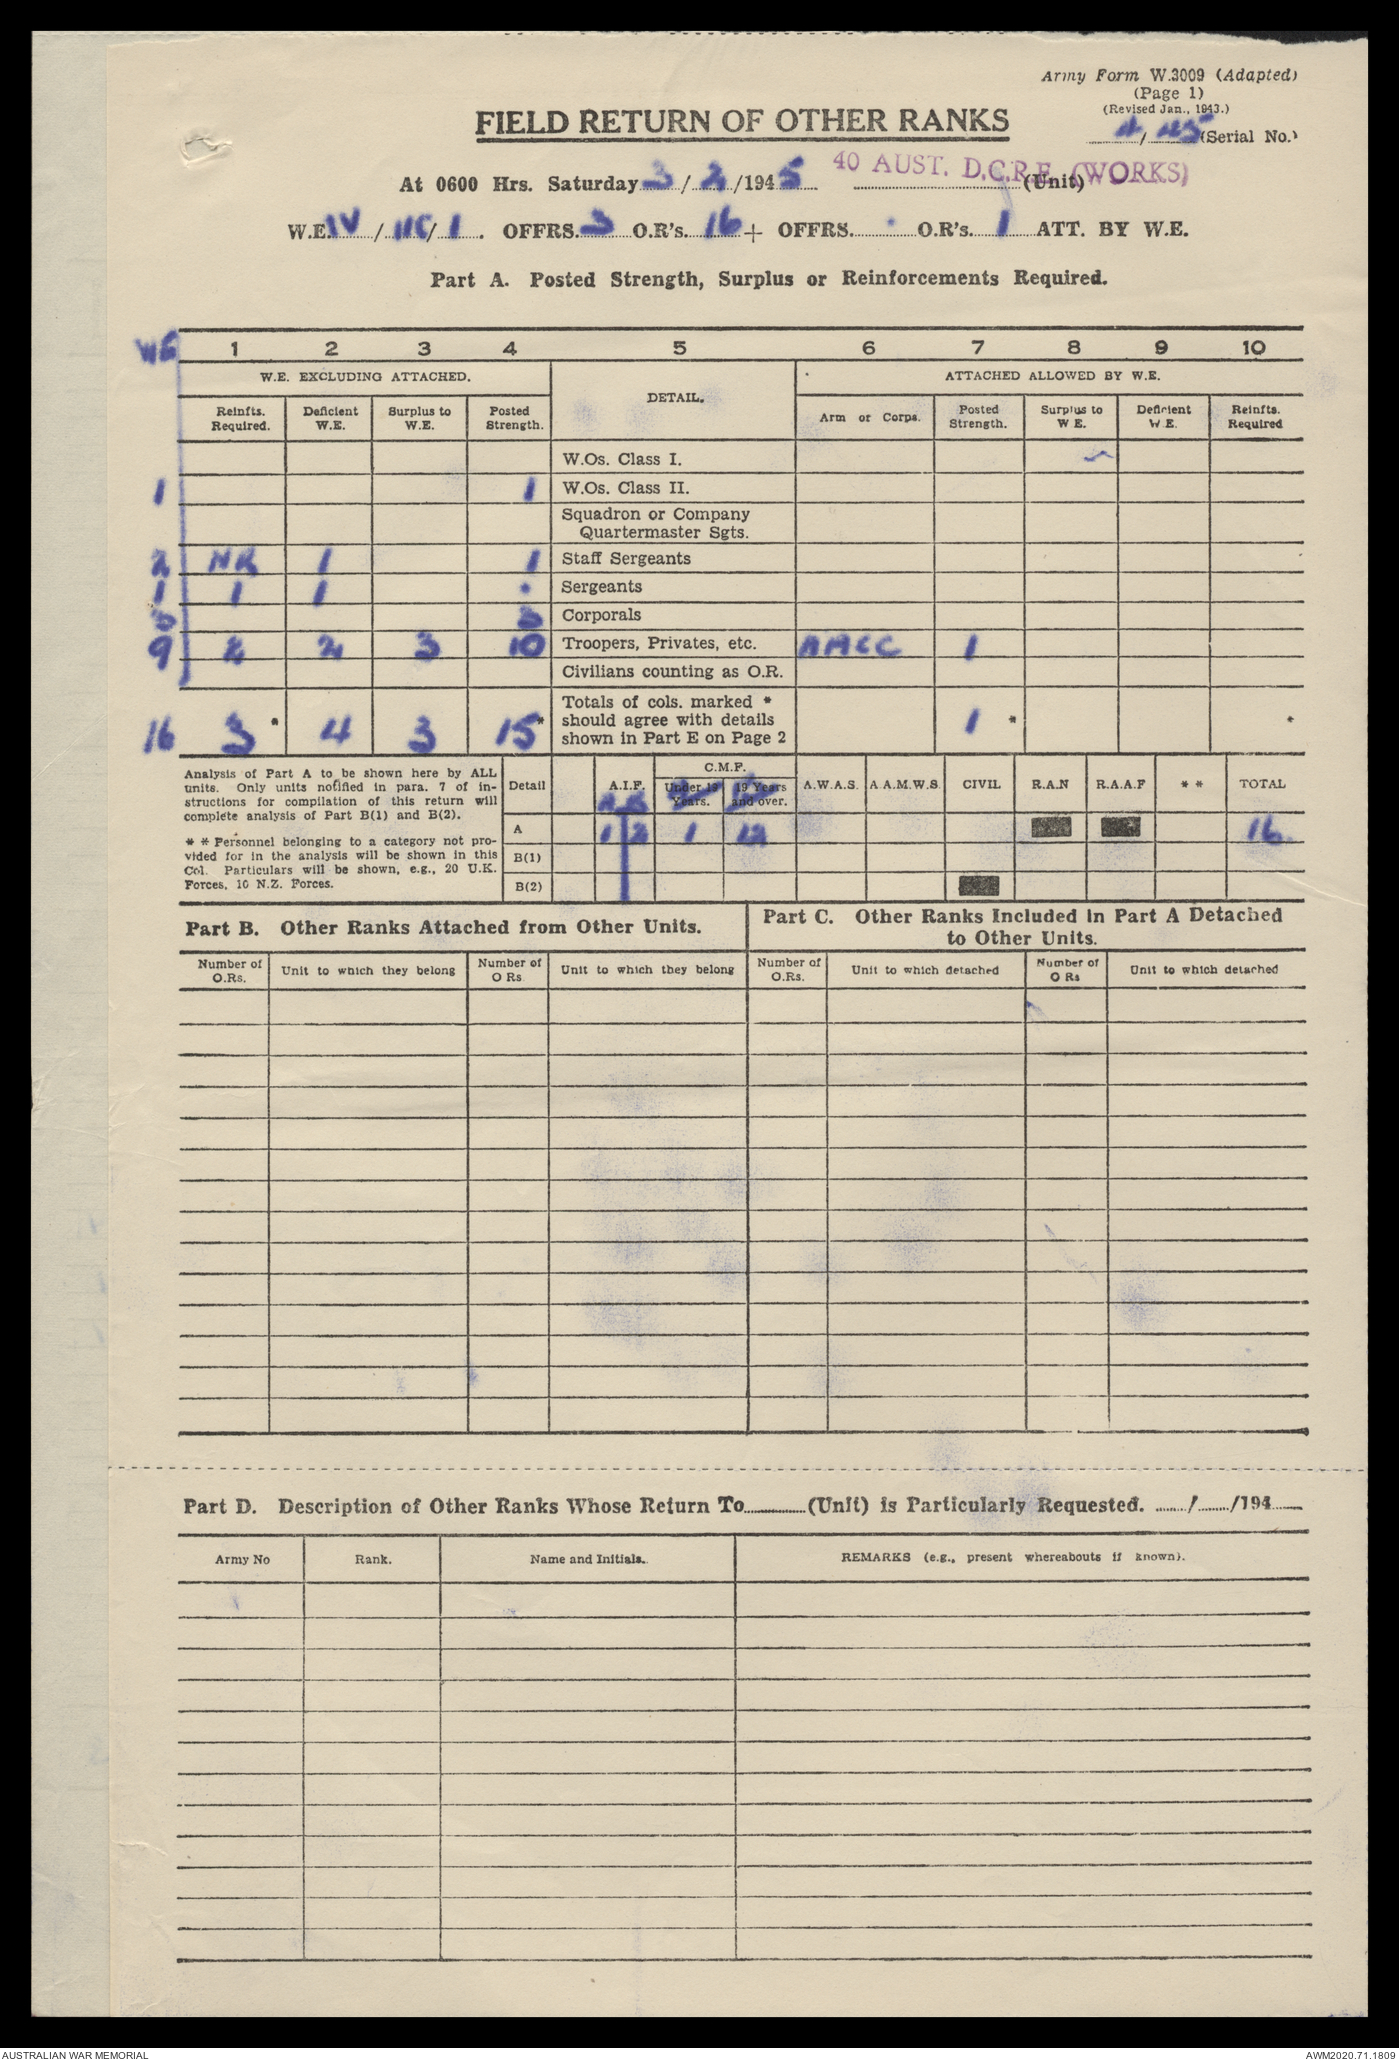 Army Form W.3009 (Adapted)
(Page 1)
(Revised Jan., 1943.)
FIELD RETURN OF OTHER RANKS
4/45 (Serial No.)
40 AUST. D.C.R.E. (WORKS)
At 0600 Hrs. Saturday 3/2/1945 (Unit)
W.E. IV/ / 1. OFFRS. 3 O.R's. 16 + OFFRS. . O.R's. 1 ATT. BY W.E.
Part A. Posted Strength, Surplus or Reinforcements Required.
WE 1 2 3 4 5 6 7 8 9 10
W.E. EXCLUDING ATTACHED. DETAIL. ATTACHED ALLOWED BY W.E.
Reinfts. Required. Deficient W.E. Surplus to W.E. Posted Strength. Arm or Corps. Posted Strength. Surplus to W E. Deficient W.E. Reinfts. Required
W.Os. Class I.
1 1 W.Os. Class II.
Squadron or Company
Quartermaster Sgts.
2 NR 1 1 Staff Sergeants
1 1 1 . Sergeants
3 3 Corporals
9 2 2 3 10 Troopers, Privates, etc. AACC 1
Civilians counting as O.R.
Totals of cols. marked *
should agree with details
shown in Part E on Page 2
16 3 * 4 3 15 * 1 * *
Analysis of Part A to be shown here by ALL
units. Only units notified in para. 7 of in-
structions for compilation of this return will
complete analysis of Part B(1) and B(2).
* * Personnel belonging to a category not pro-
vided for in the analysis will be shown in this
Col. Particulars will be shown, e.g., 20 U.K.
Forces, 10 N.Z. Forces.
Detail A.I.F. C.M.F. A.W.A.S. A A.M.W.S. CIVIL R.A.N R.A.A.F * * TOTAL
Under 19 Years. 19 Years and over.
A B
A 1 2 1 12 16
B(1)
B(2)
Part B. Other Ranks Attached from Other Units.
Part C. Other Ranks Included in Part A Detached
to Other Units.
Number of O.Rs. Unit to which they belong Number of O Rs Unit to which they belong Number of O.Rs. Unit to which detached Number of O Rs Unit to which detached
Part D. Description of Other Ranks Whose Return To (Unit) is Particularly Requested. / /194
Army No Rank. Name and Initials. REMARKS (e.g., present whereabouts if known).
AUSTRALIAN WAR MEMORIAL
AWM2020.71.1809